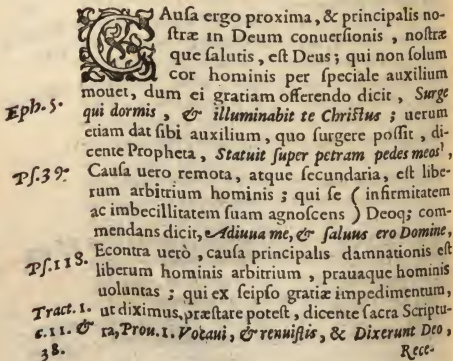 CAuſa ergo proxima, & principalis no-
ſtræ in Deum conuerſionis, noſtræ
que ſalutis, eſt Deus; qui non ſolum
cor hominis per ſpeciale auxilium
mouet, dum ei gratiam offerendo dicit, Surge
Eph. 5. qui dormis, & illuminabit te Chriſtus; uerum
etiam dat ſibi auxilium, quo ſurgere poſſit, di-
cente Propheta, Statuit ſuper petram pedes meos,
Pſ.39. Cauſa uero remota, atque ſecundaria, eſt libe-
rum arbitrium hominis; qui ſe (infirmitatem
ac imbecillitatem ſuam agnoſcens) Deoq; com-
mendans dicit, Adiuua me, & ſaluus ero Domine,
Pſ.118. Econtra uerò, cauſa principalis damnationis eſt
liberum hominis arbitrium, prauaque hominis
uoluntas; qui ex ſeipſo gratiæ impedimentum,
Tract. 1. ut diximus, præſtare poteſt, dicente ſacra Scriptu-
c.11. & ra, Prou.1. Vocaui, & renuiſtis, & Dixerunt Deo,
38. Rece-